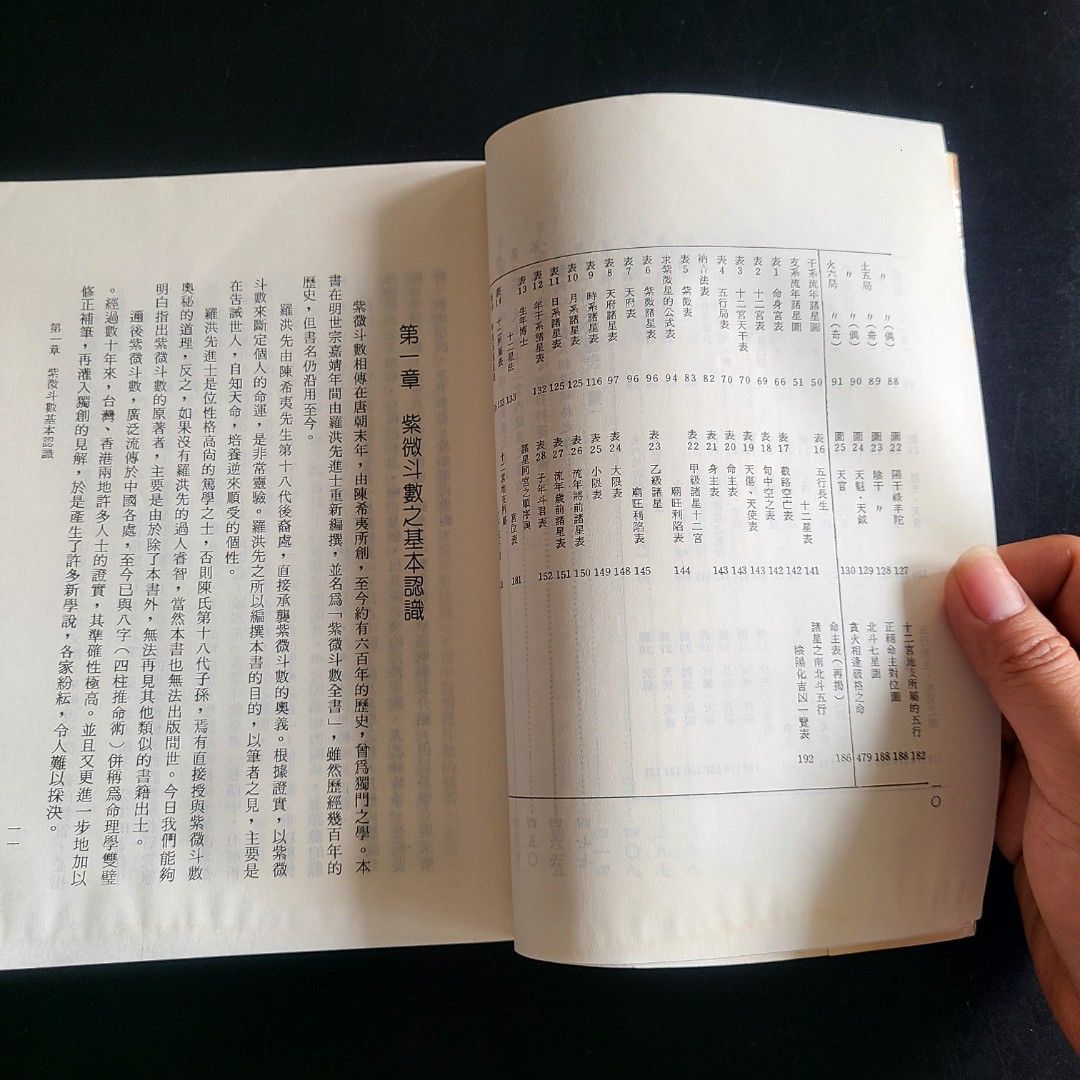 〃 〃(偶) 88
土五局 〃(奇) 89
〃 〃(偶) 90
火六局 〃(奇) 91
干系流年諸星圖 50
支系流年諸星圖 51
表1 命身宮表 66
表2 十二宮表 69
表3 十二宮天干表 70
表4 五行局表 70
納音法表 82
表5 紫微表 83
求紫微星的公式表 94
表6 紫微諸星表 96
表7 天府表 96
表8 天府諸星表 97
表9 時系諸星表 116
表10 月系諸星表 125
表11 日系諸星表 125
表12 年干系諸星表 132
表13 生年博士
十二星法 133
圖22 陽干祿羊陀 127
圖23 陰干 〃 128
圖24 天魁・天鉞 129
圖25 天官 130
表16 五行長生
十二星表 141
表17 截路空亡表 142
表18 旬中空之表 142
表19 天傷、天使表 143
表20 命主表 143
表21 身主表 143
表22 甲級諸星十二宮
廟旺利陷表 144
表23 乙級諸星
廟旺利陷表 145
表24 大限表 148
表25 小限表 149
表26 流年將前諸星表 150
表27 流年歲前諸星表 151
表28 子年斗君表 152
諸星同宮之順序與
宮位表 181
十二宮地支所屬的五行 182
正補命主對位圖 188
北斗七星圖 188
貪火相逢破格之命 479
命主表(再揭) 186
諸星之南北斗五行
陰陽化吉凶一覽表 192
一○
第一章 紫微斗數之基本認識
紫微斗數相傳在唐朝末年,由陳希夷所創,至今約有六百年的歷史,曾爲獨門之學。本
書在明世宗嘉靖年間由羅洪先進士重新編撰,並名爲「紫微斗數全書」,雖然歷經幾百年的
歷史,但書名仍沿用至今。
羅洪先由陳希夷先生第十八代後裔處,直接承襲紫微斗數的奧義。根據證實,以紫微
斗數來斷定個人的命運,是非常靈驗。羅洪先之所以編撰本書的目的,以筆者之見,主要是
在告誡世人,自知天命,培養逆來順受的個性。
羅洪先進士是位性格高尙的篤學之士,否則陳氏第十八代子孫,焉有直接授與紫微斗數
奧秘的道理,反之,如果沒有羅洪先的過人睿智,當然本書也無法出版問世。今日我們能夠
明白指出紫微斗數的原著者,主要是由於除了本書外,無法再見其他類似的書籍出土。
邇後紫微斗數,廣泛流傳於中國各處,至今已與八字(四柱推命術)併稱爲命理學雙璧
。經過數十年來,台灣、香港兩地許多人士的證實,其準確性極高。並且又更進一步地加以
修正補筆,再灌入獨創的見解,於是產生了許多新學說,各家紛紜,令人難以採決。
第一章 紫微斗數基本認識
一一